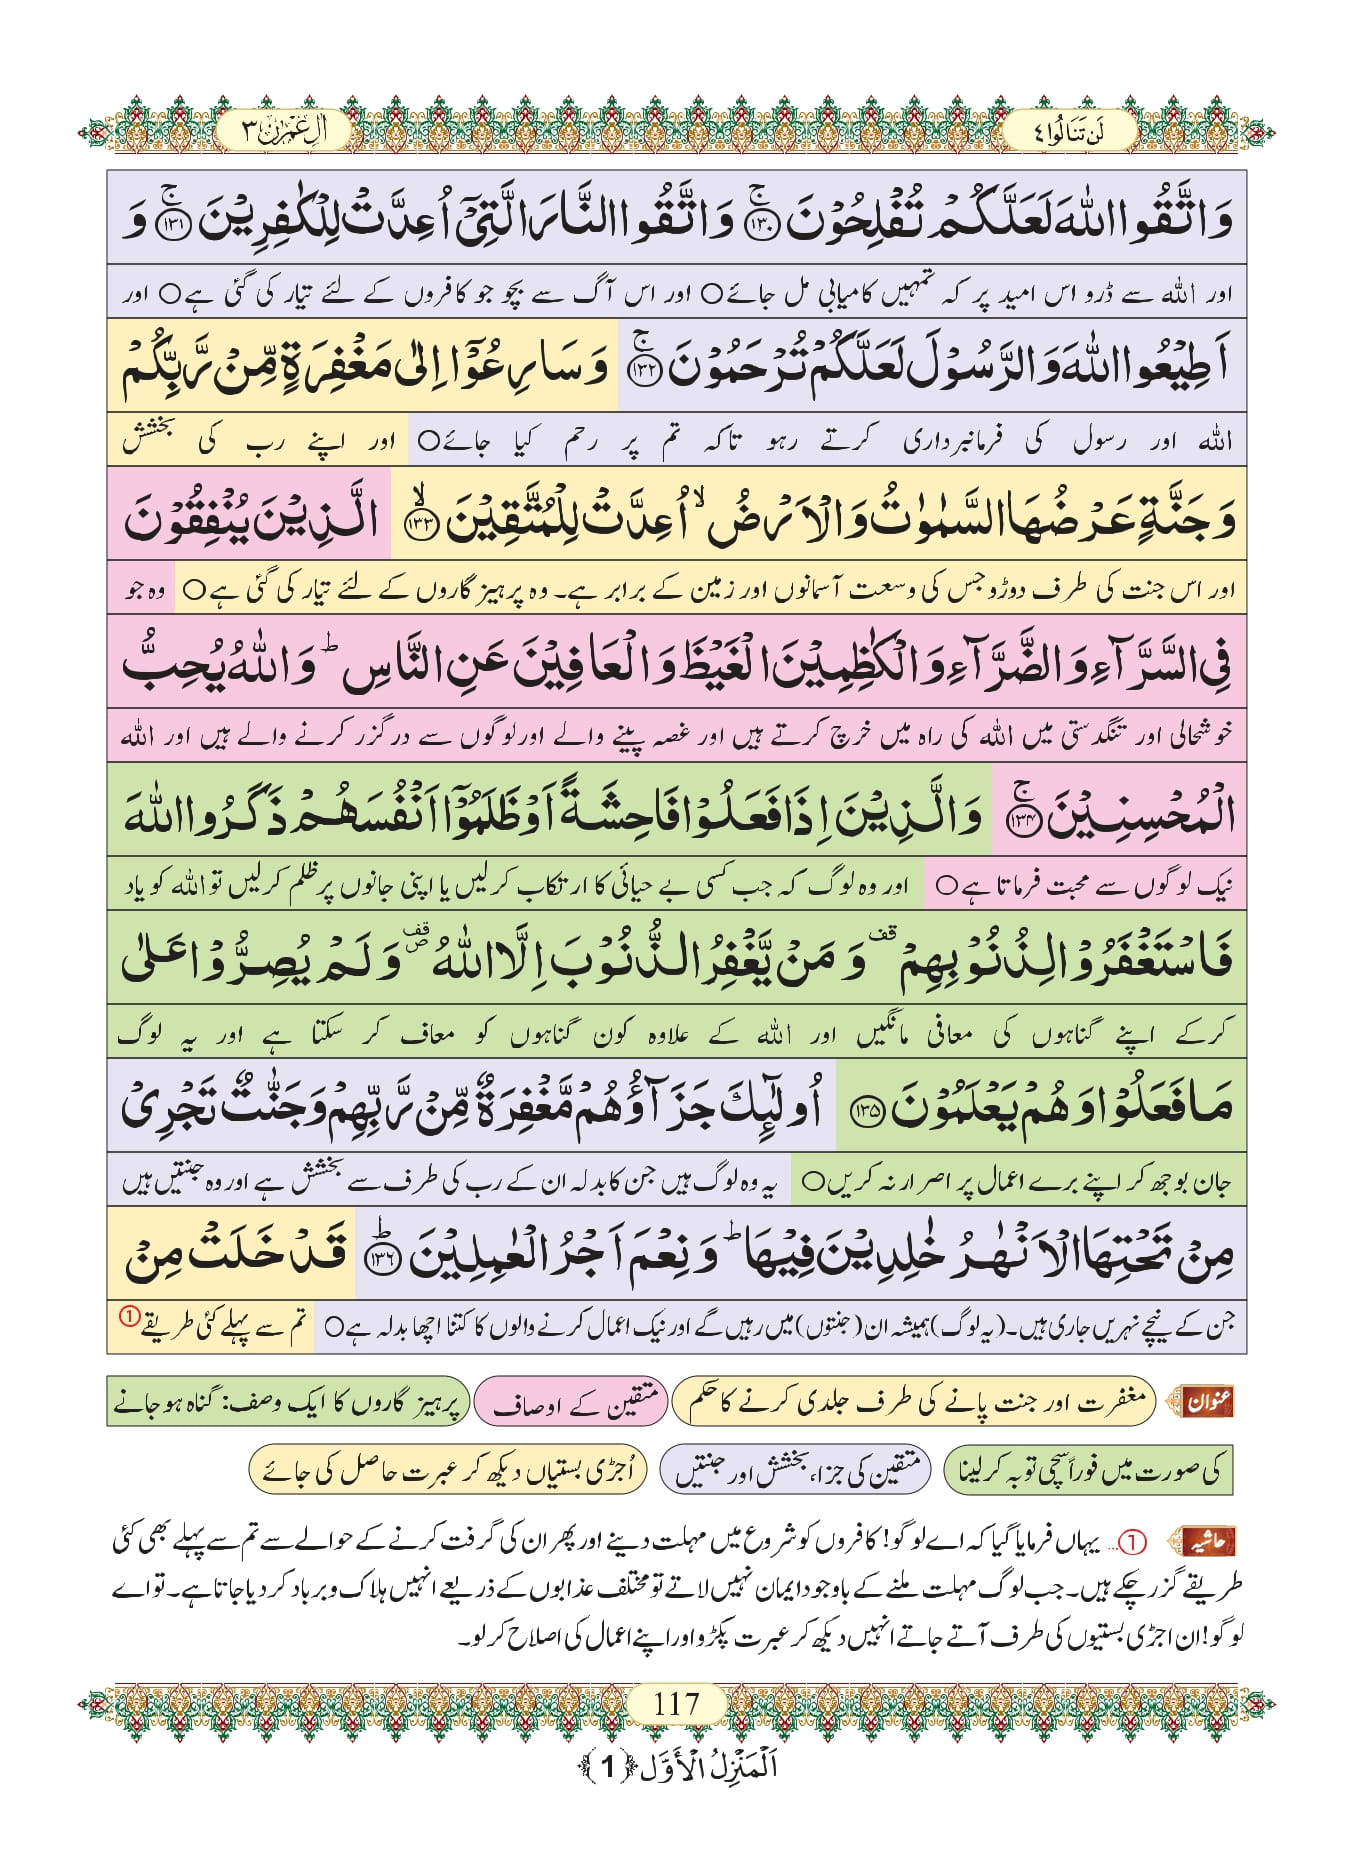 لَنْ تَنَالُوا ٤
اٰلِ عِمْرٰن ٣
وَاتَّقُوا اللّٰهَ لَعَلَّكُمْ تُفْلِحُوْنَ ۚ﴿۱۳۰﴾ وَاتَّقُوا النَّارَ الَّتِیْۤ اُعِدَّتْ لِلْكٰفِرِیْنَ ۚ﴿۱۳۱﴾ وَ
اور اللہ سے ڈرو اس امید پر کہ تمہیں کامیابی مل جائے○ اور اس آگ سے بچو جو کافروں کے لئے تیار کی گئی ہے○ اور
اَطِیْعُوا اللّٰهَ وَالرَّسُوْلَ لَعَلَّكُمْ تُرْحَمُوْنَ ۚ﴿۱۳۲﴾ وَسَارِعُوْۤا اِلٰى مَغْفِرَةٍ مِّنْ رَّبِّكُمْ
اللہ اور رسول کی فرمانبرداری کرتے رہو تاکہ تم پر رحم کیا جائے○ اور اپنے رب کی بخشش
وَجَنَّةٍ عَرْضُهَا السَّمٰوٰتُ وَالْاَرْضُ ۙ اُعِدَّتْ لِلْمُتَّقِیْنَ ۙ﴿۱۳۳﴾ الَّذِیْنَ یُنْفِقُوْنَ
اور اس جنت کی طرف دوڑو جس کی وسعت آسمانوں اور زمین کے برابر ہے۔ وہ پرہیزگاروں کے لئے تیار کی گئی ہے○ وہ جو
فِی السَّرَّآءِ وَالضَّرَّآءِ وَالْكٰظِمِیْنَ الْغَیْظَ وَالْعَافِیْنَ عَنِ النَّاسِ ؕ وَاللّٰهُ یُحِبُّ
خوشحالی اور تنگدستی میں اللہ کی راہ میں خرچ کرتے ہیں اور غصہ پینے والے اور لوگوں سے درگزر کرنے والے ہیں اور اللہ
الْمُحْسِنِیْنَ ۚ﴿۱۳۴﴾ وَالَّذِیْنَ اِذَا فَعَلُوْا فَاحِشَةً اَوْ ظَلَمُوْۤا اَنْفُسَهُمْ ذَكَرُوا اللّٰهَ
نیک لوگوں سے محبت فرماتا ہے○ اور وہ لوگ کہ جب کسی بے حیائی کا ارتکاب کرلیں یا اپنی جانوں پر ظلم کرلیں تو اللہ کو یاد
فَاسْتَغْفَرُوْا لِذُنُوْبِهِمْ ۪ وَمَنْ یَّغْفِرُ الذُّنُوْبَ اِلَّا اللّٰهُ ۪۫ وَلَمْ یُصِرُّوْا عَلٰى
کرکے اپنے گناہوں کی معافی مانگیں اور اللہ کے علاوہ کون گناہوں کو معاف کر سکتا ہے اور یہ لوگ
مَا فَعَلُوْا وَهُمْ یَعْلَمُوْنَ ﴿۱۳۵﴾ اُولٰٓىِٕكَ جَزَآؤُهُمْ مَّغْفِرَةٌ مِّنْ رَّبِّهِمْ وَجَنّٰتٌ تَجْرِیْ
جان بوجھ کر اپنے برے اعمال پر اصرار نہ کریں○ یہ وہ لوگ ہیں جن کا بدلہ ان کے رب کی طرف سے بخشش ہے اور وہ جنتیں ہیں
مِنْ تَحْتِهَا الْاَنْهٰرُ خٰلِدِیْنَ فِیْهَا ؕ وَنِعْمَ اَجْرُ الْعٰمِلِیْنَ ؕ﴿۱۳۶﴾ قَدْ خَلَتْ مِنْ
جن کے نیچے نہریں جاری ہیں۔ (یہ لوگ) ہمیشہ ان (جنتوں) میں رہیں گے اور نیک اعمال کرنے والوں کا کتنا اچھا بدلہ ہے○ تم سے پہلے کئی طریقے①
عنوان مغفرت اور جنت پانے کی طرف جلدی کرنے کا حکم متقین کے اوصاف پرہیزگاروں کا ایک وصف: گناہ ہوجانے
کی صورت میں فوراً سچی توبہ کرلینا متقین کی جزا، بخشش اور جنتیں اُجڑی بستیاں دیکھ کر عبرت حاصل کی جائے
حاشیہ ①... یہاں فرمایا گیا کہ اے لوگو! کافروں کو شروع میں مہلت دینے اور پھر ان کی گرفت کرنے کے حوالے سے تم سے پہلے بھی کئی
طریقے گزر چکے ہیں۔ جب لوگ مہلت ملنے کے باوجود ایمان نہیں لاتے تو مختلف عذابوں کے ذریعے انہیں ہلاک وبرباد کر دیا جاتا ہے۔ تو اے
لوگو! ان اجڑی بستیوں کی طرف آتے جاتے انہیں دیکھ کر عبرت پکڑو اور اپنے اعمال کی اصلاح کرلو۔
117
اَلْمَنْزِلُ الْاَوَّل ﴿1﴾